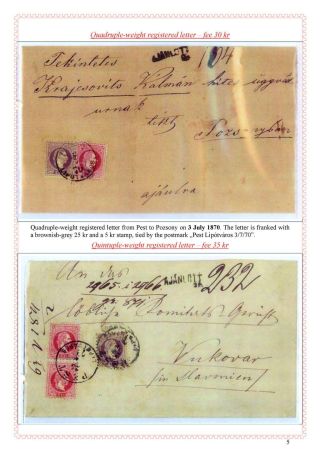 Quadruple-weight registered letter – fee 30 kr
AJÁNLOTT
Tekintetes
Krajcsovits Kálmán hites ügyvéd
urnak
tiszt
Pozsonyban
ajánlva
Quadruple-weight registered letter from Pest to Pozsony on 3 July 1870. The letter is franked
with a brownish-grey 25 kr and a 5 kr stamp, tied by the postmark „Pest Lipótváros 3/7/70”.
Quintuple-weight registered letter – fee 35 kr
An das
AJÁNLOTT
232
1965 i 1966
Löbliche Comitats Gericht
Vukovar
in Slavonien
5